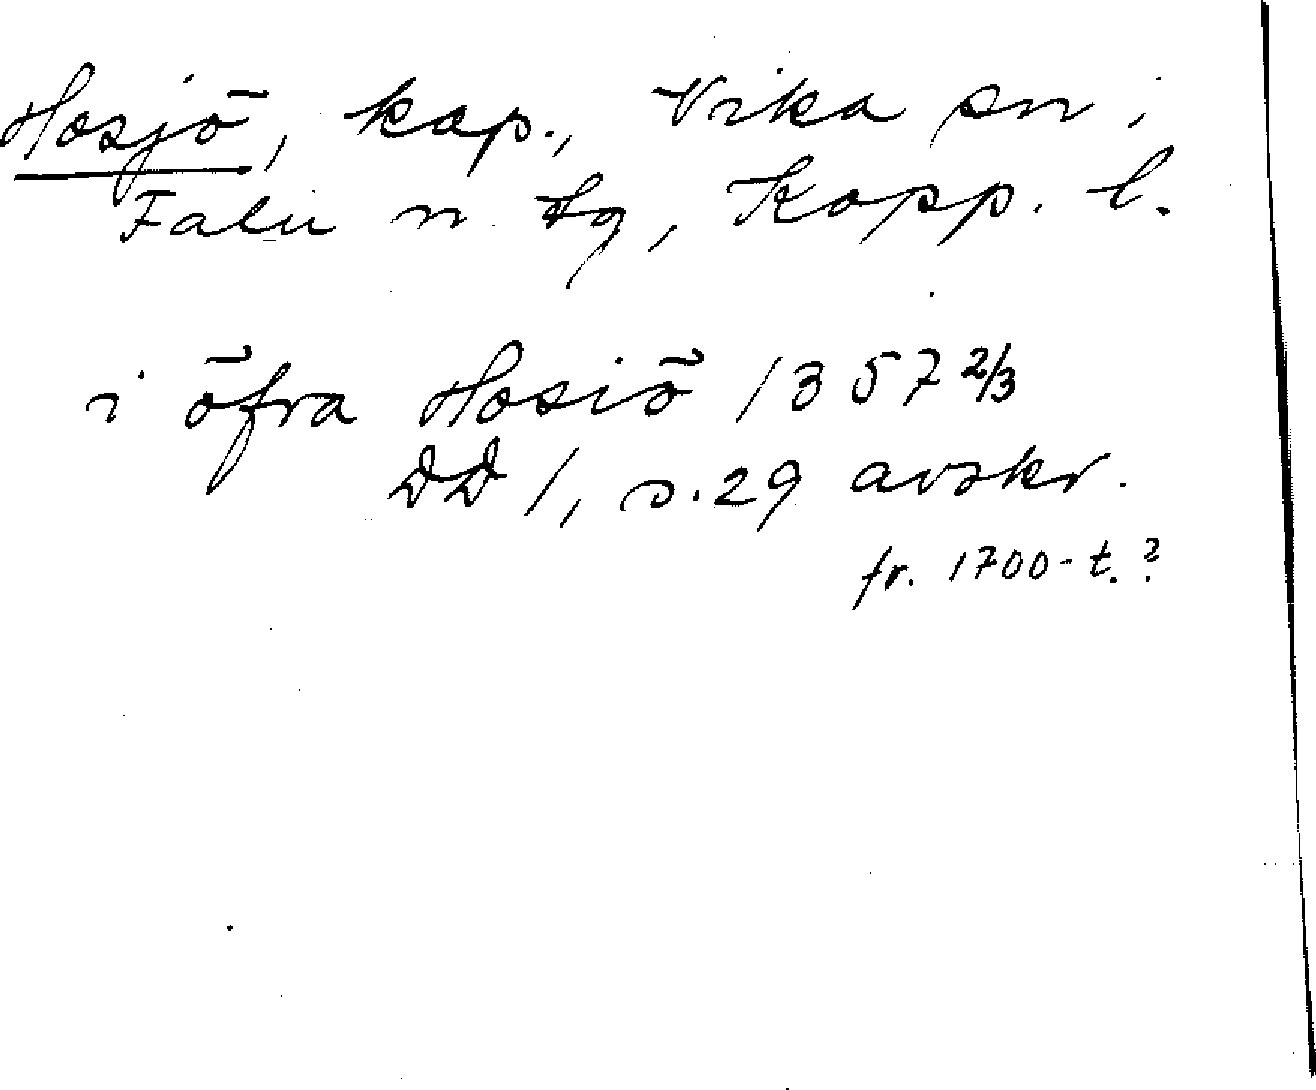 Hosjö, kap., Vika sn,
Falu n. tg, Kopp. l.
i öfra Hosiö 1357 2/3
DD 1, s. 29 avskr.
fr. 1700-t.?